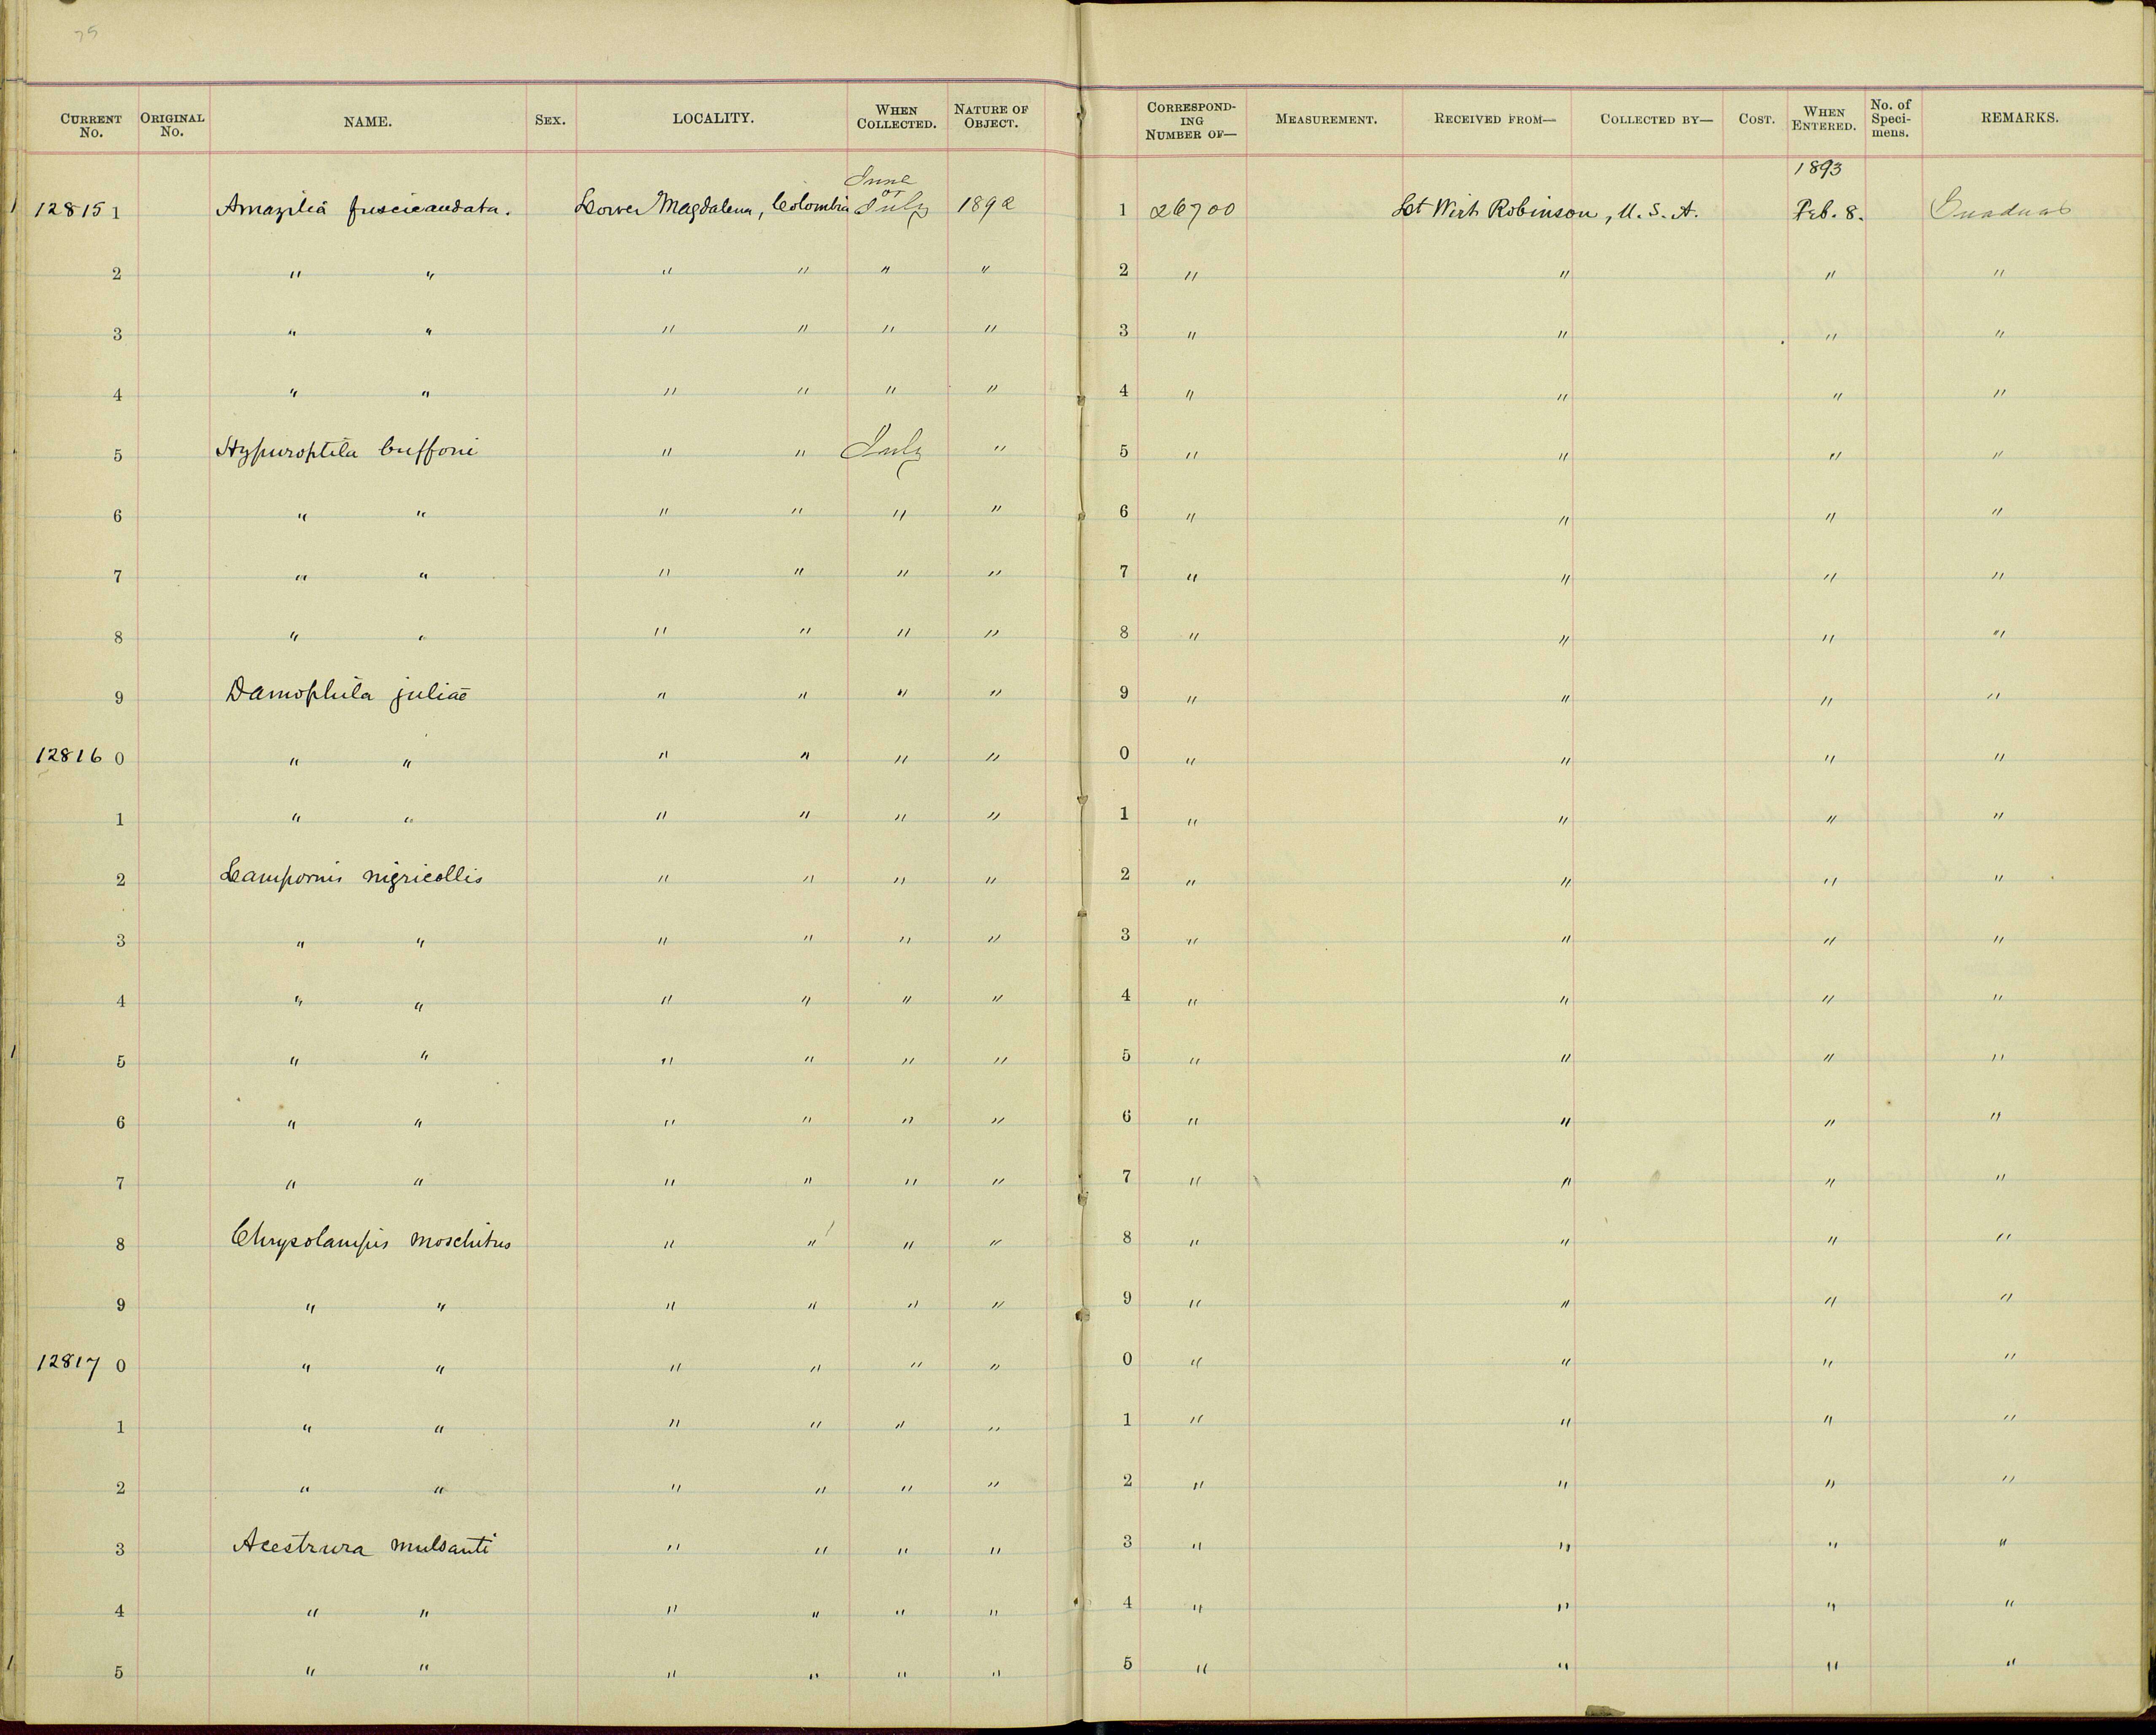 75
CURRENT No. ORIGINAL No. NAME. SEX. LOCALITY. WHEN COLLECTED. NATURE OF OBJECT. CORRESPONDING NUMBER OF— MEASUREMENT. RECEIVED FROM— COLLECTED BY— COST. WHEN ENTERED. No. of Specimens. REMARKS.
June or 1893
128151 Amazilia fuscicaudata. Lower Magdalena, Colombia July 1892 1 26700 Lt Wirt Robinson, U.S.A. Feb. 8. Guaduas
2 " " " " " " 2 " " " "
3 " " " " " " 3 " " " "
4 " " " " " " 4 " " " "
5 Hypuroptila buffoni " " July " 5 " " " "
6 " " " " " " 6 " " " "
7 " " " " " " 7 " " " "
8 " " " " " " 8 " " " "
9 Damophila juliae " " " " 9 " " " "
128160 " " " " " " 0 " " " "
1 " " " " " " 1 " " " "
2 Lampornis nigricollis " " " " 2 " " " "
3 " " " " " " 3 " " " "
4 " " " " " " 4 " " " "
5 " " " " " " 5 " " " "
6 " " " " " " 6 " " " "
7 " " " " " " 7 " " " "
8 Chrysolampis moschitus " " " " 8 " " " "
9 " " " " " " 9 " " " "
128170 " " " " " " 0 " " " "
1 " " " " " " 1 " " " "
2 " " " " " " 2 " " " "
3 Acestrura mulsanti " " " " 3 " " " "
4 " " " " " " 4 " " " "
5 " " " " " " 5 " " " "